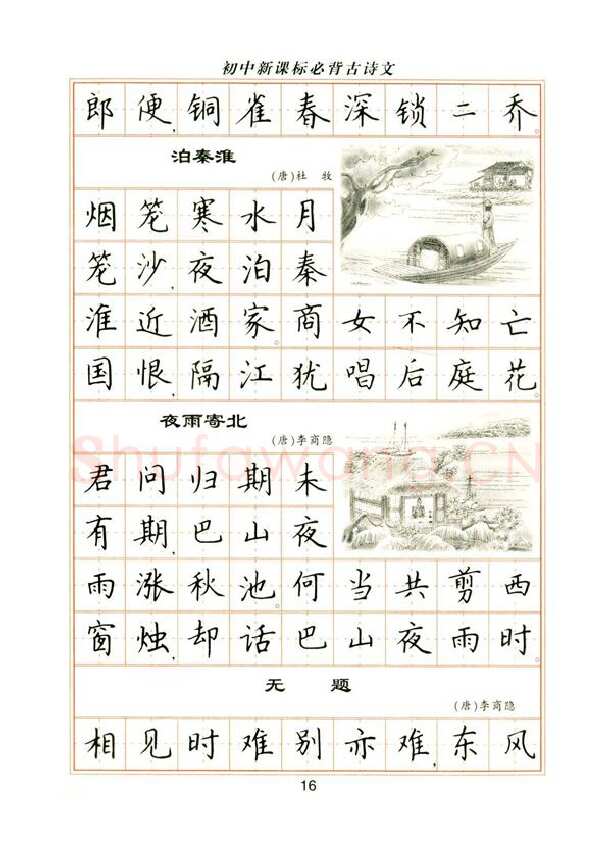 初中新课标必背古诗文
郎便,铜雀春深锁二乔。
泊秦淮
(唐)杜 牧
烟笼寒水月
笼沙,夜泊秦
淮近酒家。商女不知亡
国恨,隔江犹唱后庭花。
夜雨寄北
(唐)李商隐
君问归期未
有期,巴山夜
雨涨秋池。何当共剪西
窗烛,却话巴山夜雨时。
无 题
(唐)李商隐
相见时难别亦难,东风
16
Shufawang.CN